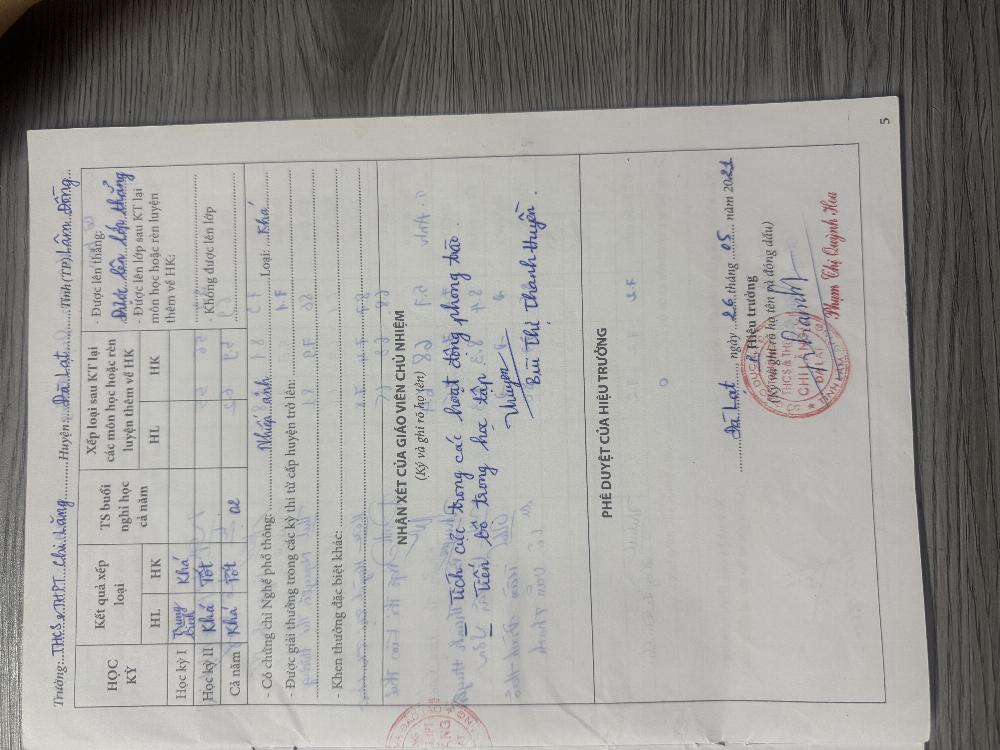 Trường:...THCS & THPT...Chi Lăng.........Huyện:...Đà Lạt.........Tỉnh (TP) Lâm Đồng...
HỌC KỲ
Kết quả xếp loại
TS buổi nghỉ học cả năm
Xếp loại sau KT lại các môn học hoặc rèn luyện thêm về HK
HL
HK
HL
HK
- Được lên thẳng:
Được lên lớp thẳng
- Được lên lớp sau KT lại
môn học hoặc rèn luyện
thêm về HK:
- Không được lên lớp
Học kỳ I Trung bình Khá
Học kỳ II Khá Tốt
Cả năm Khá Tốt 02
- Có chứng chỉ Nghề phổ thông: ............Nhiếp ảnh............Loại: ...Khá
- Được giải thưởng trong các kỳ thi từ cấp huyện trở lên: ............
- Khen thưởng đặc biệt khác: ............
NHẬN XÉT CỦA GIÁO VIÊN CHỦ NHIỆM
(Ký và ghi rõ họ tên)
- Tích cực trong các hoạt động phong trào.
- Tiến bộ trong học tập.
Huyền
Bùi Thị Thanh Huyền.
PHÊ DUYỆT CỦA HIỆU TRƯỞNG
Đà Lạt, ngày 26 tháng 05 năm 2021
Hiệu trưởng
(Ký và ghi rõ họ tên và đóng dấu)
THCS & THPT
CHI LĂNG
ĐÀ LẠT
Phạm Thị Quỳnh Hoa
5